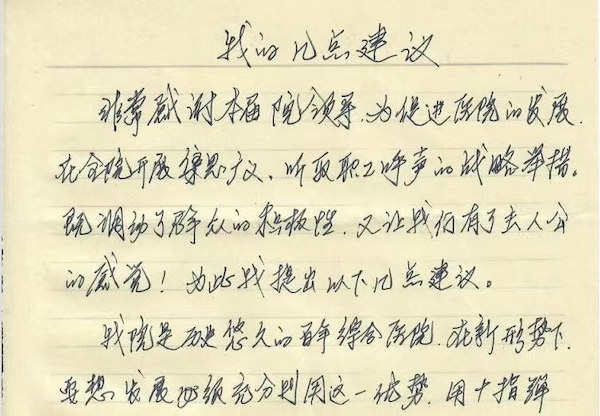 我的几点建议
非常感谢本届院领导,为促进医院的发展,
在全院开展集思广义,听取职工呼声的战略举措。
既调动了群众的积极性,又让我们有了主人公
的感觉!为此我提出以下几点建议。
我院是历史悠久的百年综合医院,在新形势下,
要想发展必须充分利用这一优势,用十指弹